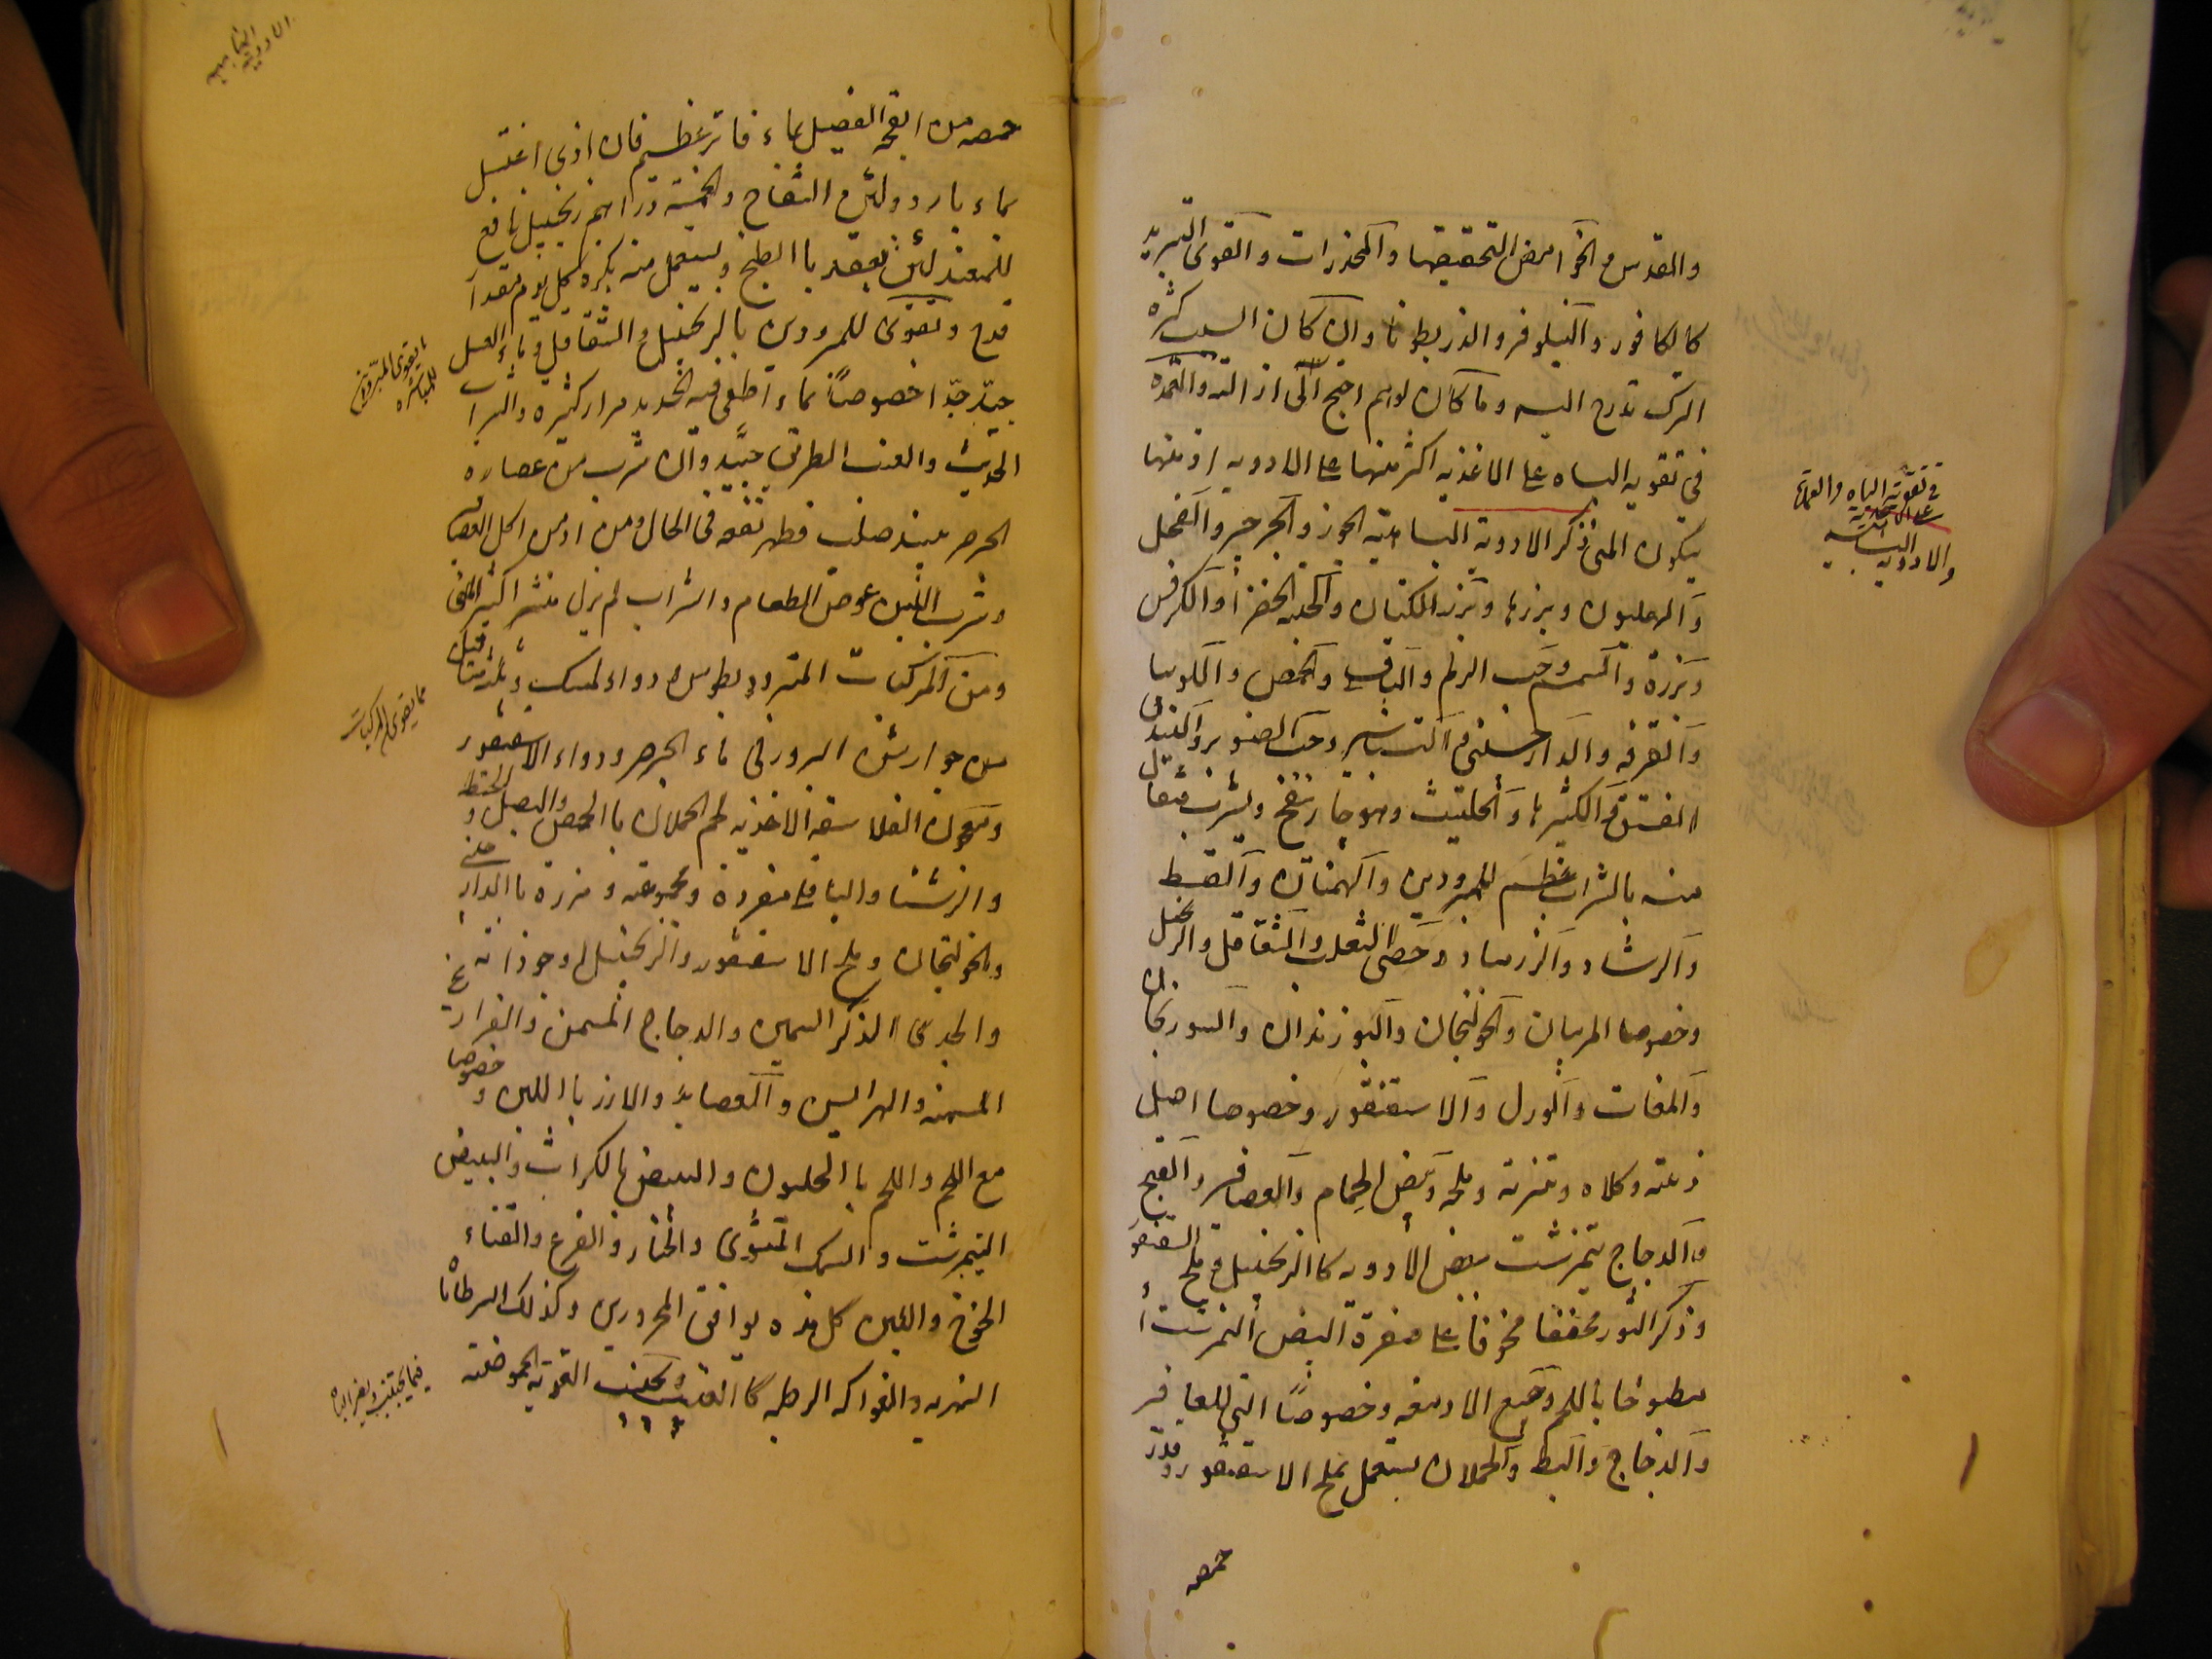 والعدس والحوامض التحقيقها والمخدرات والقوى التبريد
كالكافور والنيلوفر والذريطونا وان كان السبب كثره
الترك تدرج اليه وما كان لوهم احتج الى ازالته والعمدة
في تقويه الباه على الاغذيه اكثر منها على الادويه اذ منها
يكون المنى ذكر الادوية الباهيه الجوز والجرجير والفجل
والهليون وبزرها وبزر الكتان والحبه الخضرا والكرفس
وبزره والسمسم وحب الزلم والباقلى والحمص واللوبيا
والقرفه والدارچيني وحب الصنوبر والبندق
الفستق والكثيرا والحلتيت وهو حار ينفخ ويشرب مثقال
منه بالشراب عظيم للمبرودين والبهمنان والقسط
والرشاد والزرنباد وخصى الثعلب والشقاقل والزنجبيل
وخصوصا المربيان والخولنجان والبوزندان والسورنجان
والمغاث والورل والاسقنقور وخصوصا اصل
ذنبه وكلاه وسرته وملحه وبيض الحمام والعصافير والقبج
والدجاج نيمرشت ببعض الادويه كالزنجبيل وملح السقنقور
وذكر الثور مجففا مخروفا على صفرة البيض النمرشت أو
مطبوخا باللحم وجميع الادمغه وخصوصا التي للعصافير
والدجاج والبط والحملان يستعمل بملح الاسقنقور وقدر
حمصه
في تقوية الباه والعمدة
على الاغذيه
والادوية الباهيه
الادوية الباهيه
حمصه من انفحه الفصيل بماء فاتر عظيم فان اذى اغتسل
بماء بارد ولبن النفاج وخمسة دراهم زنجبيل نافع
للمعتد لبن يعقد باالطبخ ويستعمل منه بكره كل يوم مقدار
قدح ويقوى للمبرودين بالزنجبيل والشقاقل وماء العسل
جيد جدا خصوصا بماء اطفى فيه الحديد مرار كثيره والشراب
الحديث والعنب الطرى جيد وان شرب من عصاره
الجرجير بنبيذ صلب فظهر نفعه في الحال ومن ادمن اكل العصافير
وشرب اللبن عوض الطعام والشراب لم يزل منتشرا كثير المنى
ومن المركبات المثروديطوس دواء المسك
من جوارشن البزور في ماء الجرجير ودواء الاسقنقور
ومعجون الفلاسفه الاغذيه لحم الحملان باالحمص والبصل والحنطه
والزشتا والباقلى مفرده ومجموعه ومزرة باالدارچيني
والخولنجان وملح الاسقنقور والزنجبيل وجوذابه
والجدى الذكر السمين والدجاج المسمن والفراريخ
المسمنه والهرايس والعصايد والارز باللبن وخصوصا
مع اللحم واللحم باالحليون والبيض بالكراث والبيض
النيمرشت والسمك المشوى والخيار والقرع والقثاء
الخوخ واللبن كل هذه يوافق المحرورين وكذلك السرطانات
النهريه والفواكه الرطبه كاالعنب ويجتنب القويه الحموضه
ما يقوى المبرودين
للمباشره
مما يقوى المركبات
فيما يجتنب ويضر الباه